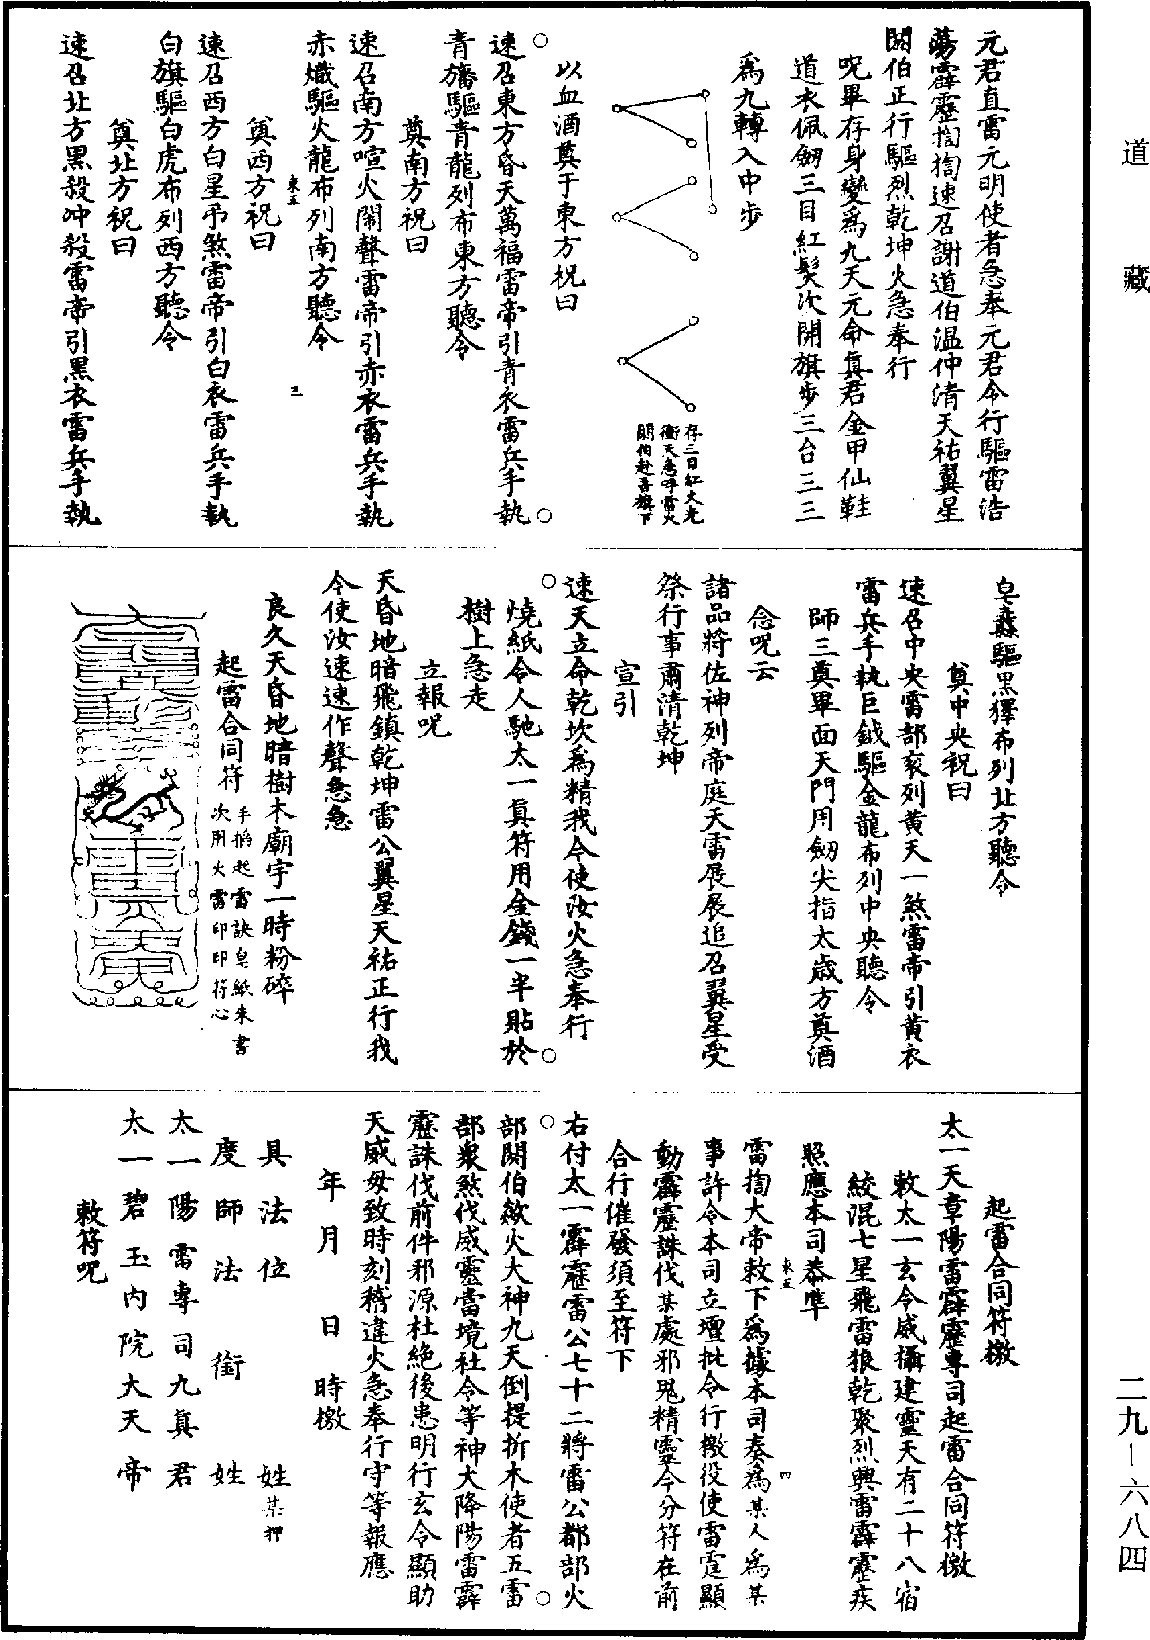 道藏
元君直雷元明使者急奉元君令行驅雷浩
蕩霹靂㨋㨋速召謝道伯溫仲清天祐翼星
閼伯正行驅烈乾坤火急奉行
呪畢存身變為九天元命真君金甲仙鞋
道衣佩劒三目紅髮次開旗步三台三三
為九轉入中步
存三目紅火光
衝天急呼雷火
閼伯赴吾旗下
以血酒奠于東方祝曰
速召東方昏天萬福雷帝引青衣雷兵手執
青旛驅青龍列布東方聽令
奠南方祝曰
速召南方喧火鬧聲雷帝引赤衣雷兵手執
赤熾驅火龍布列南方聽令
奠西方祝曰
速召西方白星弔煞雷帝引白衣雷兵手執
白旗驅白虎布列西方聽令
奠北方祝曰
速召北方黑殺冲殺雷帝引黑衣雷兵手執
皂纛驅黑獰布列北方聽令
奠中央祝曰
速召中央雷部亥列黃天一煞雷帝引黃衣
雷兵手執巨鉞驅金龍布列中央聽令
師三奠畢面天門用劒尖指太歲方奠酒
念呪云
諸品將佐神列帝庭天雷展展追召翼星受
祭行事肅清乾坤
宣引
速天立命乾坎為精我令使汝火急奉行
燒紙令人馳太一真符用金錢一半貼於
樹上急走
立報呪
天昏地暗飛鎮乾坤雷公翼星天祐正行我
令使汝速速作聲急急
良久天昏地暗樹木廟宇一時粉碎
起雷合同符
手搯起雷訣皂紙朱書
次用火雷印印符心
起雷合同符檄
太一天章陽雷霹靂專司起雷合同符檄
敕太一玄令威攝建靈天有二十八宿
絞混七星飛雷狼乾聚烈興雷霹靂疾
照應本司恭準
雷㨋大帝敕下為據本司奏為某人為某
事許令本司立壇批令行檄役使雷霆顯
動霹靂誅伐某處邪鬼精靈今分符在前
合行催發須至符下
右付太一霹靂雷公七十二將雷公都部火
部閼伯歘火大神九天倒提折木使者五雷
部衆煞伐威靈當境社令等神大降陽雷霹
靂誅伐前件邪源杜絕後患明行玄令顯助
天威毋致時刻稽違火急奉行守等報應
年月日時檄
具法位姓某押
度師法銜姓
太一陽雷專司九真君
太一碧玉內院大天帝
敕符呪
二九—六八四